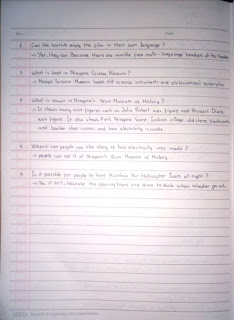 No.
Date:
1 Can the tourists enjoy the film in their own language ?
→ Yes, they can. Because there are available free multi-language headsets at the Theater
2 What is kept in Niagara Science Museum ?
→ Niagara Science Museum keeps old science instruments and philosophical
3 What is shown in Niagara's Wax Museum of History ?
→ It shows many wax figures such as Julia Robert wax figure and Princess Diana
wax figure. It also shows Fort Niagara Scene, Indian village, old store, blacksmith,
and barber shop scenes and how electricity is made.
4 Where can people see the story of how electricity was made ?
→ people can see it at Niagara's Wax Museum of History.
5 Is it possible for people to have Rainbow Air Helicopter Tours at night ?
→ No, it isn't, because the operations are 9am to dusk when weather permit.